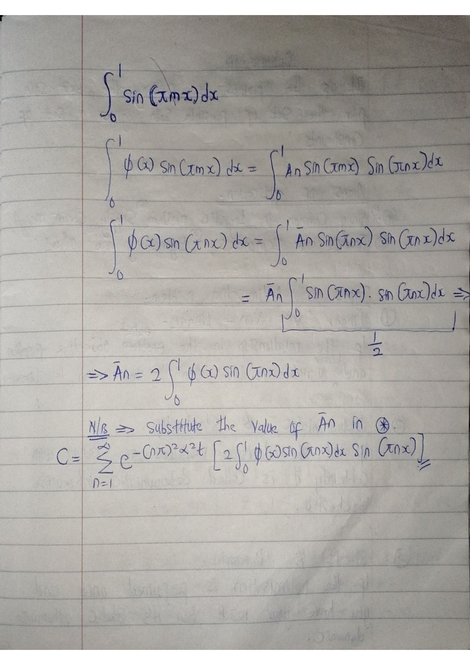 ∫₀¹ sin (πmx) dx
∫₀¹ φ(x) sin (πmx) dx = ∫₀¹ An Sin (πmx) Sin (πnx) dx
∫₀¹ φ(x) sin (πnx) dx = ∫₀¹ Ān Sin (πnx) sin (πnx) dx
= Ān ∫₀¹ sin (πnx) . sin (πnx) dx ⇒
1/2
⇒ Ān = 2 ∫₀¹ φ(x) sin (πnx) dx
N/B ⇒ Substitute the value of Ān in ⊛.
C = ∑ₙ₌₁^∞ e^-(nπ)²α²t [2∫₀¹ φ(x) sin (πnx) dx Sin (πnx)]